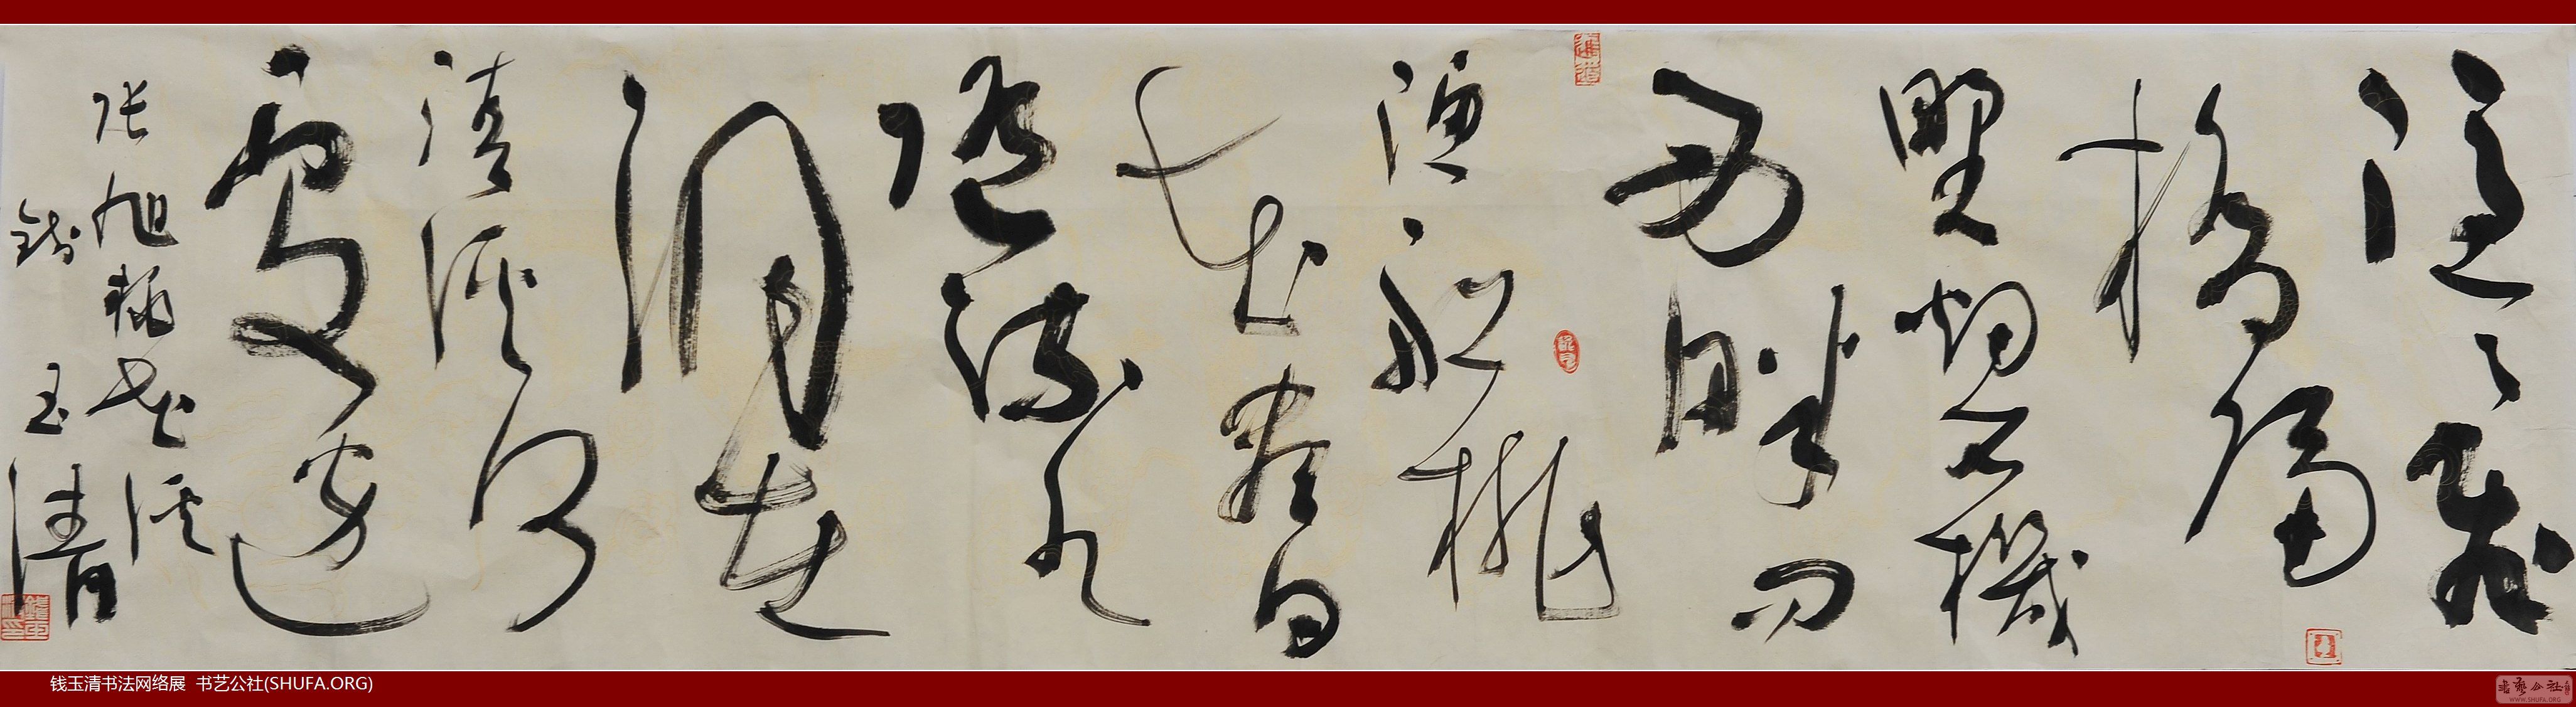 隱〻飛
橋隔
野烟石機
西畔问
漁船桃
花盡日
随流水
洞在
清溪何
處边
张旭桃花溪
钱玉清
钱玉清书法网络展 书艺公社(SHUFA.ORG)
書藝公社
WWW.SHUFA.ORG